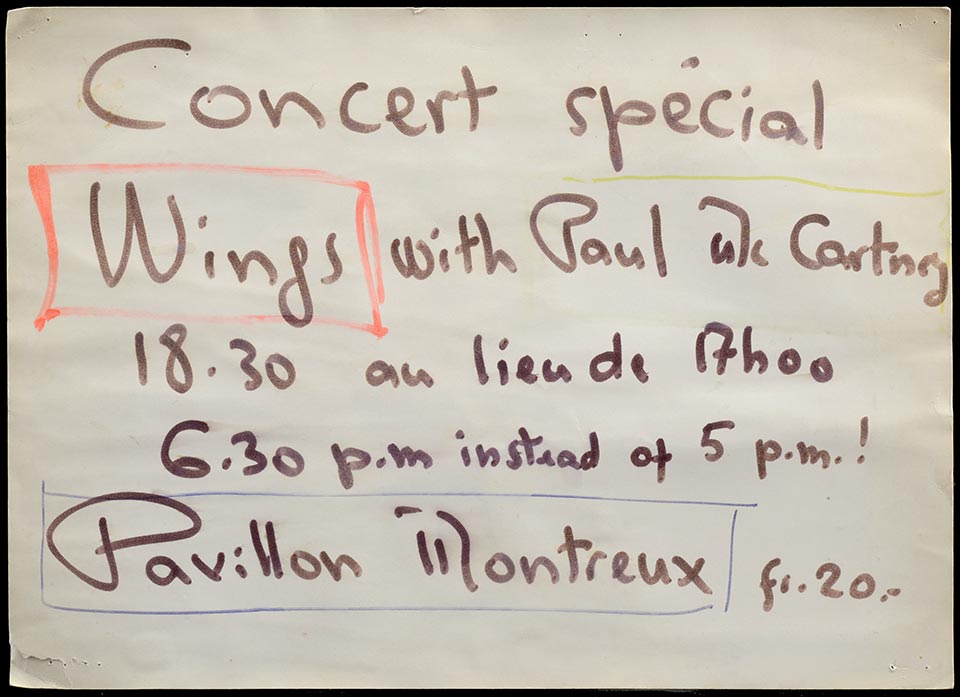 Concert spécial
Wings with Paul Mc Cartney
18.30 au lieu de 17h00
6.30 p.m instead of 5 p.m.!
Pavillon Montreux fr. 20.-